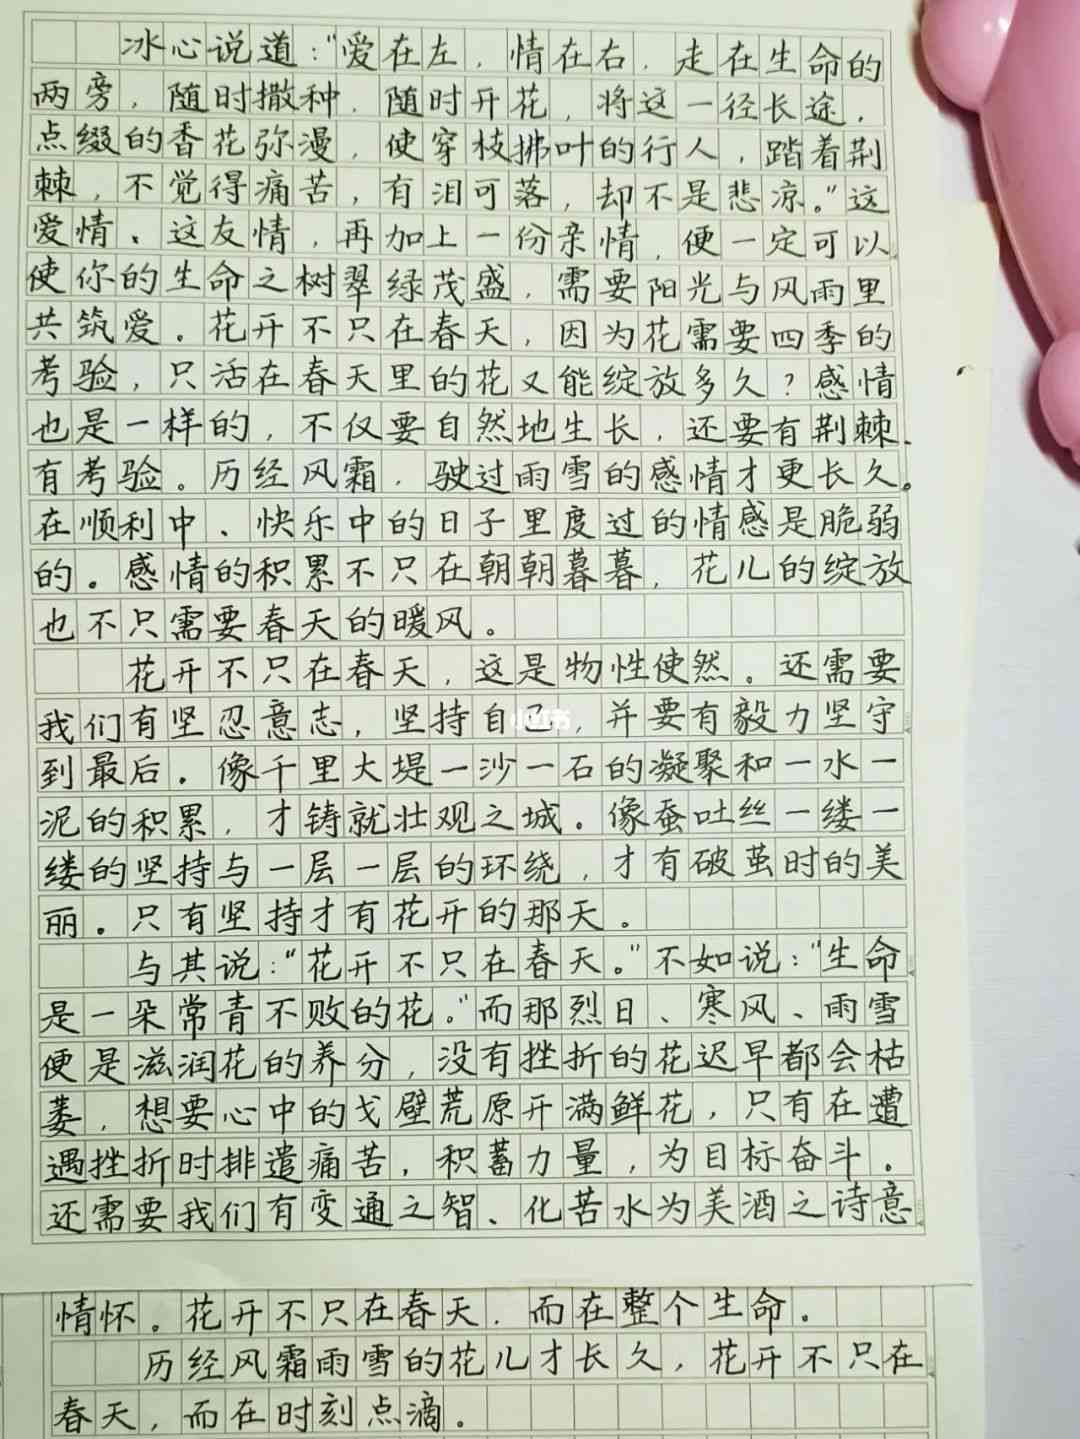 冰心说道:“爱在左,情在右,走在生命的
两旁,随时撒种,随时开花,将这一径长途,
点缀的香花弥漫,使穿枝拂叶的行人,踏着荆
棘,不觉得痛苦,有泪可落,却不是悲凉。”这
爱情、这友情,再加上一份亲情,便一定可以
使你的生命之树翠绿茂盛,需要阳光与风雨里
共筑爱。花开不只在春天,因为花需要四季的
考验,只活在春天里的花又能绽放多久?感情
也是一样的,不仅要自然地生长,还要有荆棘、
有考验。历经风霜,驶过雨雪的感情才更长久。
在顺利中、快乐中的日子里度过的情感是脆弱
的。感情的积累不只在朝朝暮暮,花儿的绽放
也不只需要春天的暖风。
花开不只在春天,这是物性使然。还需要
我们有坚忍意志,坚持自己,并要有毅力坚守
到最后。像千里大堤一沙一石的凝聚和一水一
泥的积累,才铸就壮观之城。像蚕吐丝一缕一
缕的坚持与一层一层的环绕,才有破茧时的美
丽。只有坚持才有花开的那天。
与其说:“花开不只在春天。”不如说:“生命
是一朵常青不败的花。”而那烈日、寒风、雨雪
便是滋润花的养分,没有挫折的花迟早都会枯
萎,想要心中的戈壁荒原开满鲜花,只有在遭
遇挫折时排遣痛苦,积蓄力量,为目标奋斗。
还需要我们有变通之智、化苦水为美酒之诗意
情怀。花开不只在春天,而在整个生命。
历经风霜雨雪的花儿才长久,花开不只在
春天,而在时刻点滴。
小红书